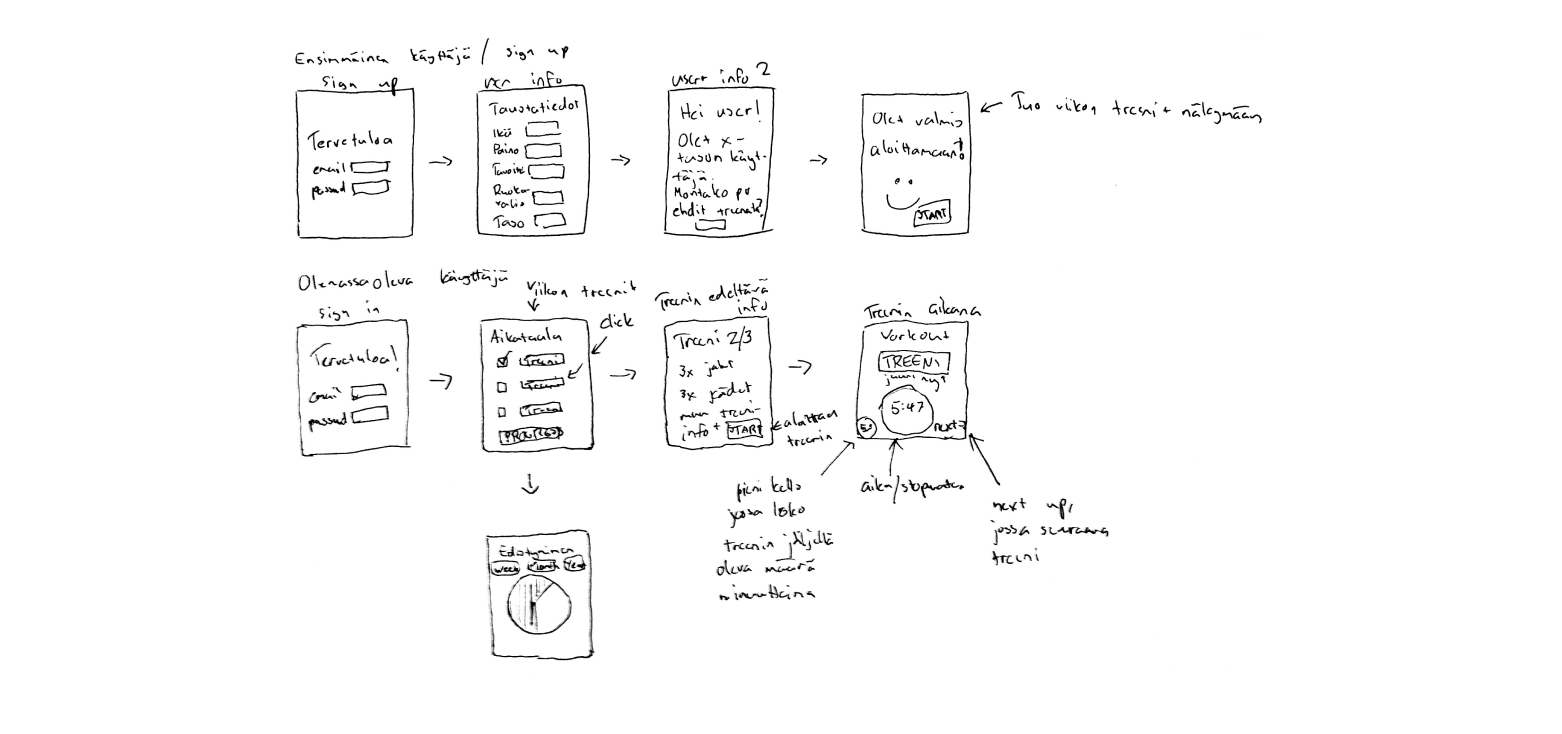 Ensimmäinen käyttäjä / sign up
sign up
user info
user info 2
Tervetuloa
email
passwd
Taustatiedot
Ikä
Paino
Tavoite
Ruoka-
valio
Taso
Hei user!
Olet x-
tason käyt-
täjä.
Montako pv
ehdit treenata?
Olet valmis
aloittamaan!
START
Tuo viikon treenit näkymään
Olemassaoleva käyttäjä
sign in
Tervetuloa!
email
passwd
Viikon treenit
click
Aikataulu
Treeni
Treeni
Treeni
PROGRESS
Treenin edeltävä
info
Treeni 2/3
3x jalat
3x kädet
muu treeni-
info +
START
aloittaa
treenin
Treenin aikana
Workout
TREENI
juuri nyt
5:47
next
pieni kello
jossa koko
treenin jäljellä
oleva määrä
minuutteina
aika/stopwatch
next up,
jossa seuraava
treeni
Edistyminen
week
Month
Year